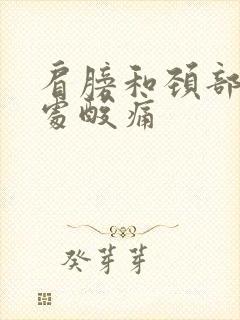 肩膀和颈部
处酸痛
癸芽芽